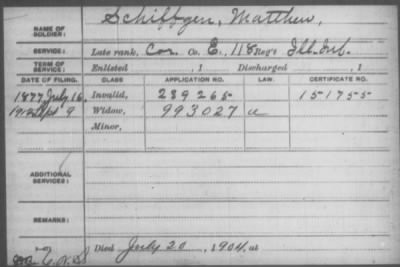 NAME OF SOLDIER: Schiffgen, Matthew,
SERVICE: Late rank, Cor. Co. E, 118 Reg't Ill. Inf.
TERM OF SERVICE: Enlisted , 1 Discharged , 1
DATE OF FILING. CLASS APPLICATION NO. LAW. CERTIFICATE NO.
1877 July 16 Invalid, 239265 151755
Sept 9 Widow, 993027
Minor,
ADDITIONAL SERVICES:
REMARKS:
Died July 20, 1904, at